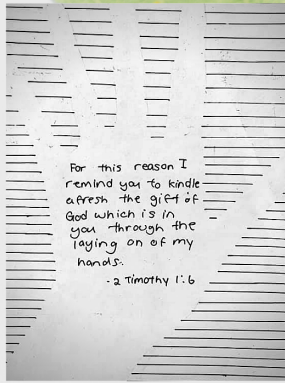 For this reason I
remind you to kindle
afresh the gift of
God which is in
you through the
laying on of my
hands.
- 2 Timothy 1:6